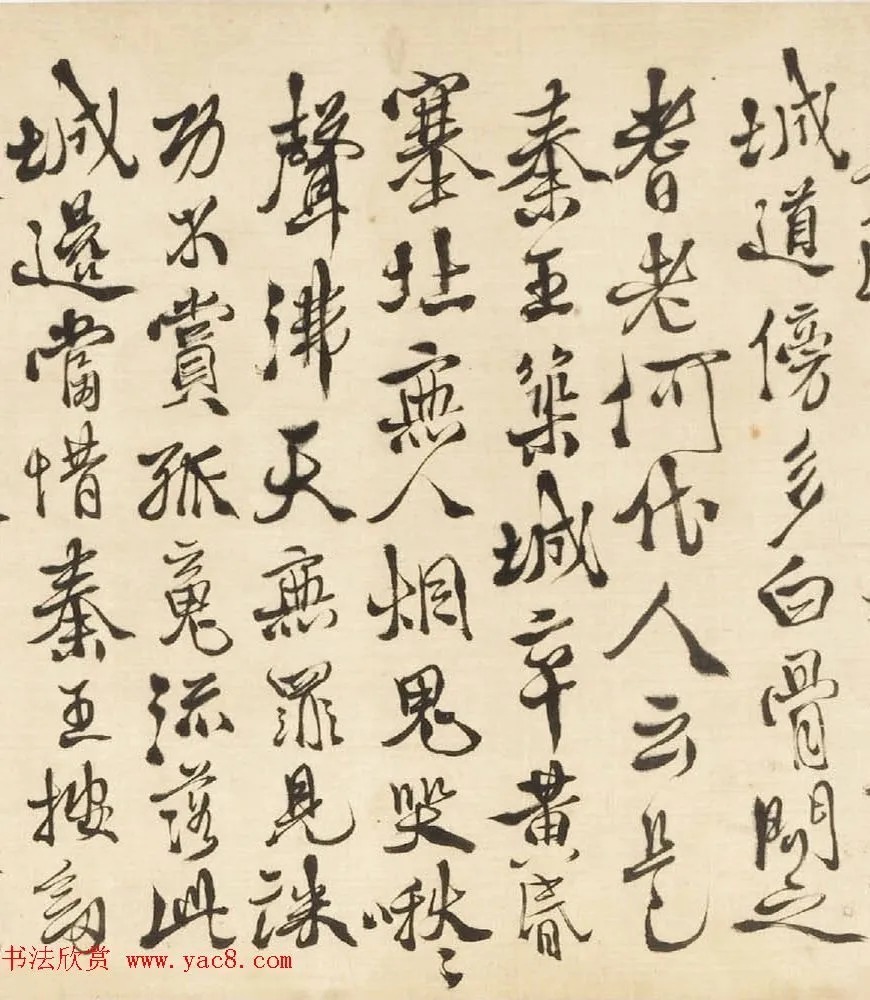 城道傍多白骨問之
耆老何代人云是
秦王築城卒黃昏
塞北無人烟鬼哭啾〻
聲沸天無罪見誅
功不賞孤魂流落此
城邊當惜秦王按劍
书法欣赏 www.yac8.com